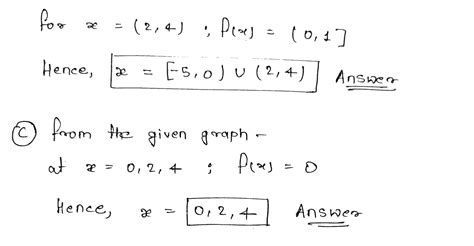 for x = (2,4) ; f(x) = (0,1]
Hence, x = [-5,0) ∪ (2,4) Answer
(C) from the given graph -
at x = 0,2,4 ; f(x) = 0
Hence, x = 0,2,4 Answer